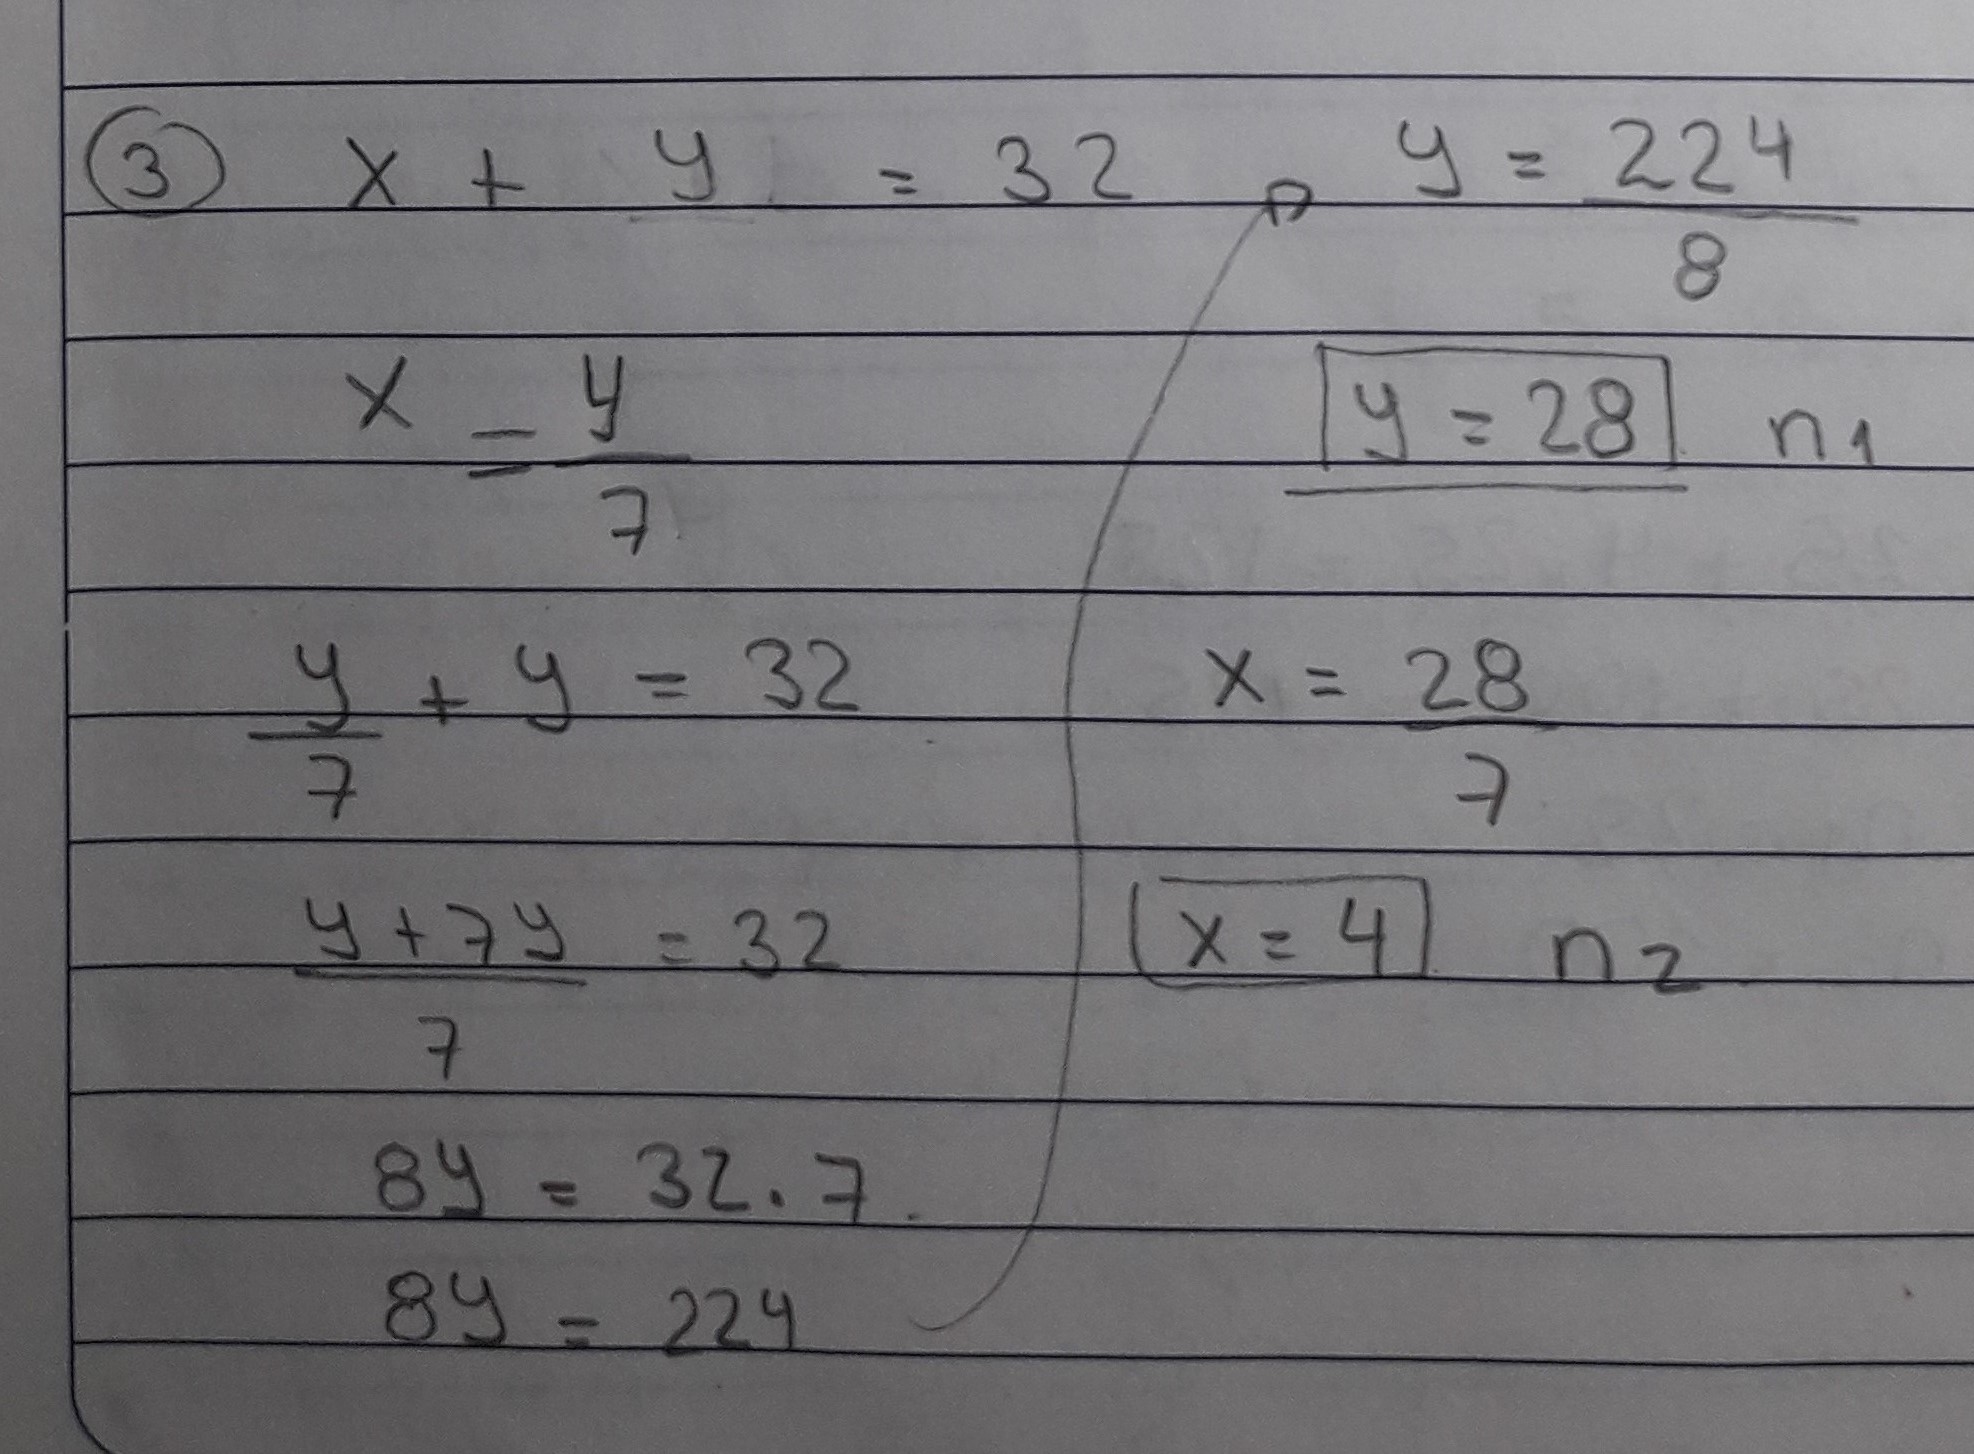 ③ x + y = 32
x = y/7
y/7 + y = 32
y + 7y / 7 = 32
8y = 32 . 7
8y = 224
y = 224/8
y = 28 n1
x = 28/7
x = 4 n2